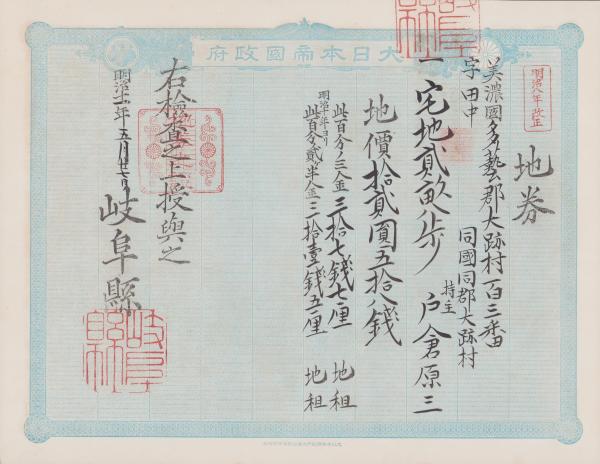 大日本帝國政府
明治九年改正
地券
美濃國多藝郡大跡村百三番
字田中
同國同郡大跡村
一宅地貳畝八歩
持主
戸倉原三
地價拾貳圓五拾八錢
此百分ノ三金
三拾七錢七厘
地租
明治十年ヨリ
此百分ノ貳ヶ半金
三拾壹錢五厘
地租
右檢査之上授與之
明治十一年五月廿七日
岐阜縣